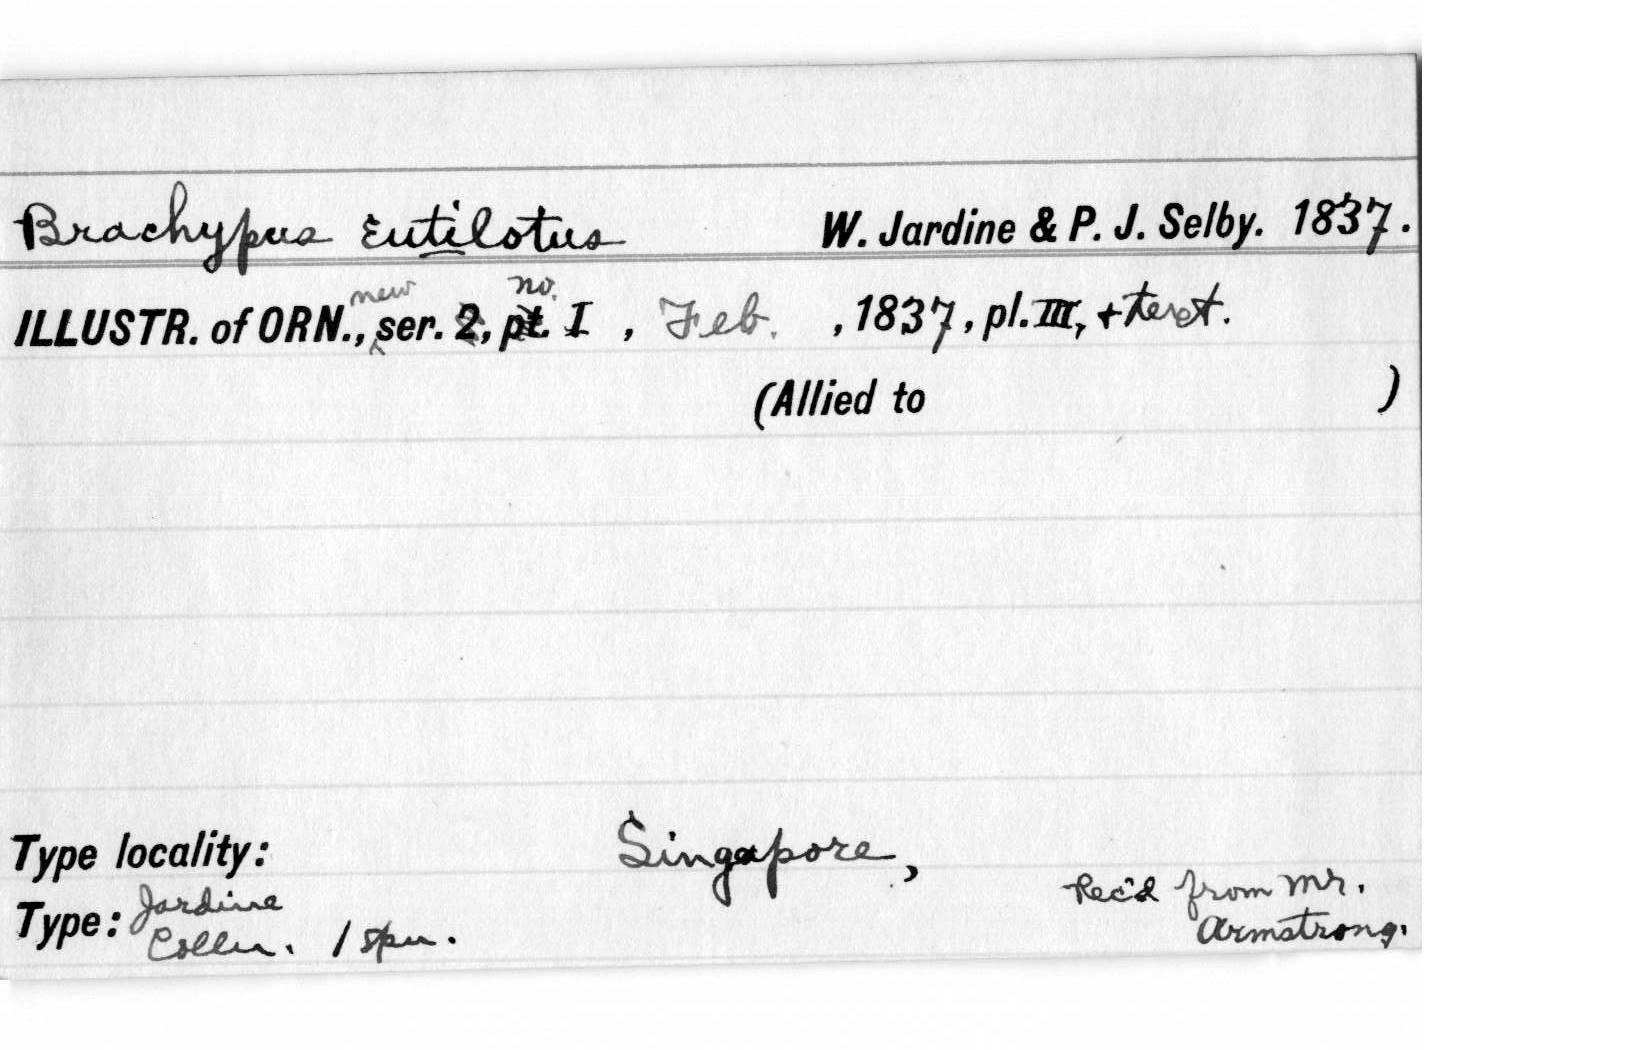 Brachypus eutilotus W. Jardine & P. J. Selby. 1837.
new no.
ILLUSTR. of ORN., ser. 2, pt. I , Feb. , 1837, pl. III, + text.
(Allied to )
Type locality: Singapore,
Type: Jardine Rec'd from Mr.
Colln. 1 spn. Armstrong.